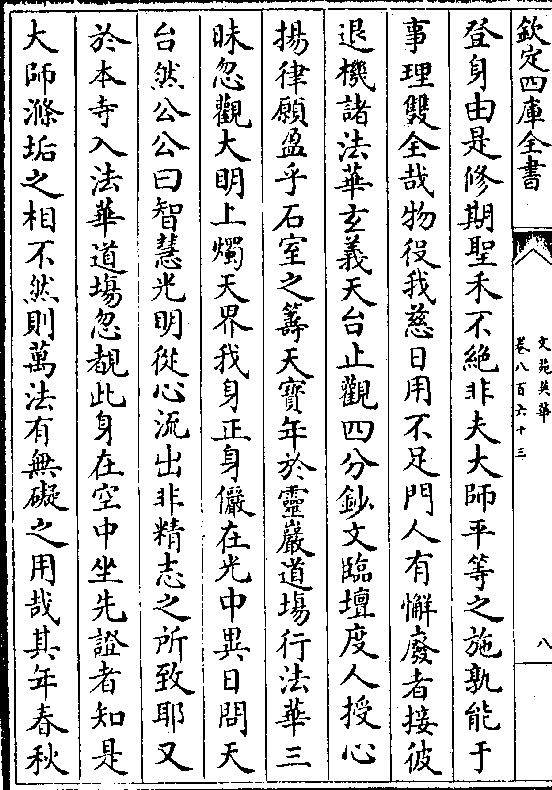 欽定四庫全書
文苑英華
卷八百六十三
八
登身由是修期聖禾不絶非夫大師平等之施孰能于
事理雙全哉物役我慈日用不足門人有懈廢者接彼
退機諸法華玄義天台止觀四分鈔文臨壇度人授心
揚律願盈乎石室之籌天寶年於靈巖道場行法華三
昧忽觀大明上燭天界我身正身儼在光中異日問天
台然公公曰智慧光明從心流出非精志之所致耶又
於本寺入法華道場忽覩此身在空中坐先證者知是
大師滌垢之相不然則萬法有無礙之用哉其年春秋